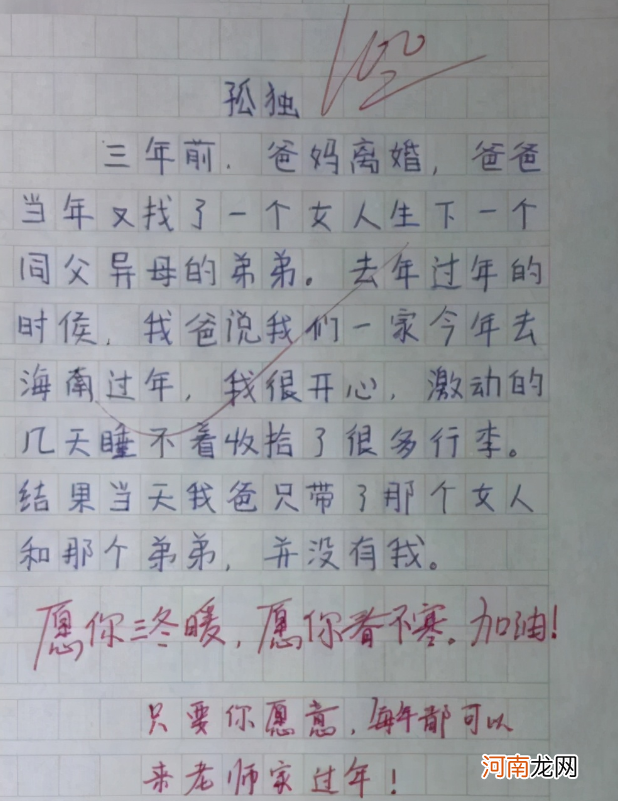 100
孤独
三年前．爸妈离婚，爸爸
当年又找了一个女人生下一个
同父异母的弟弟。去年过年的
时侯，我爸说我们一家今年去
海南过年，我很开心，激动的
几天睡不着收拾了很多行李。
结果当天我爸只带了那个女人
和那个弟弟，并没有我。
愿你三冬暖，愿你春不寒。加油！
只要你愿意，每年都可以
来老师家过年！
河南龙网